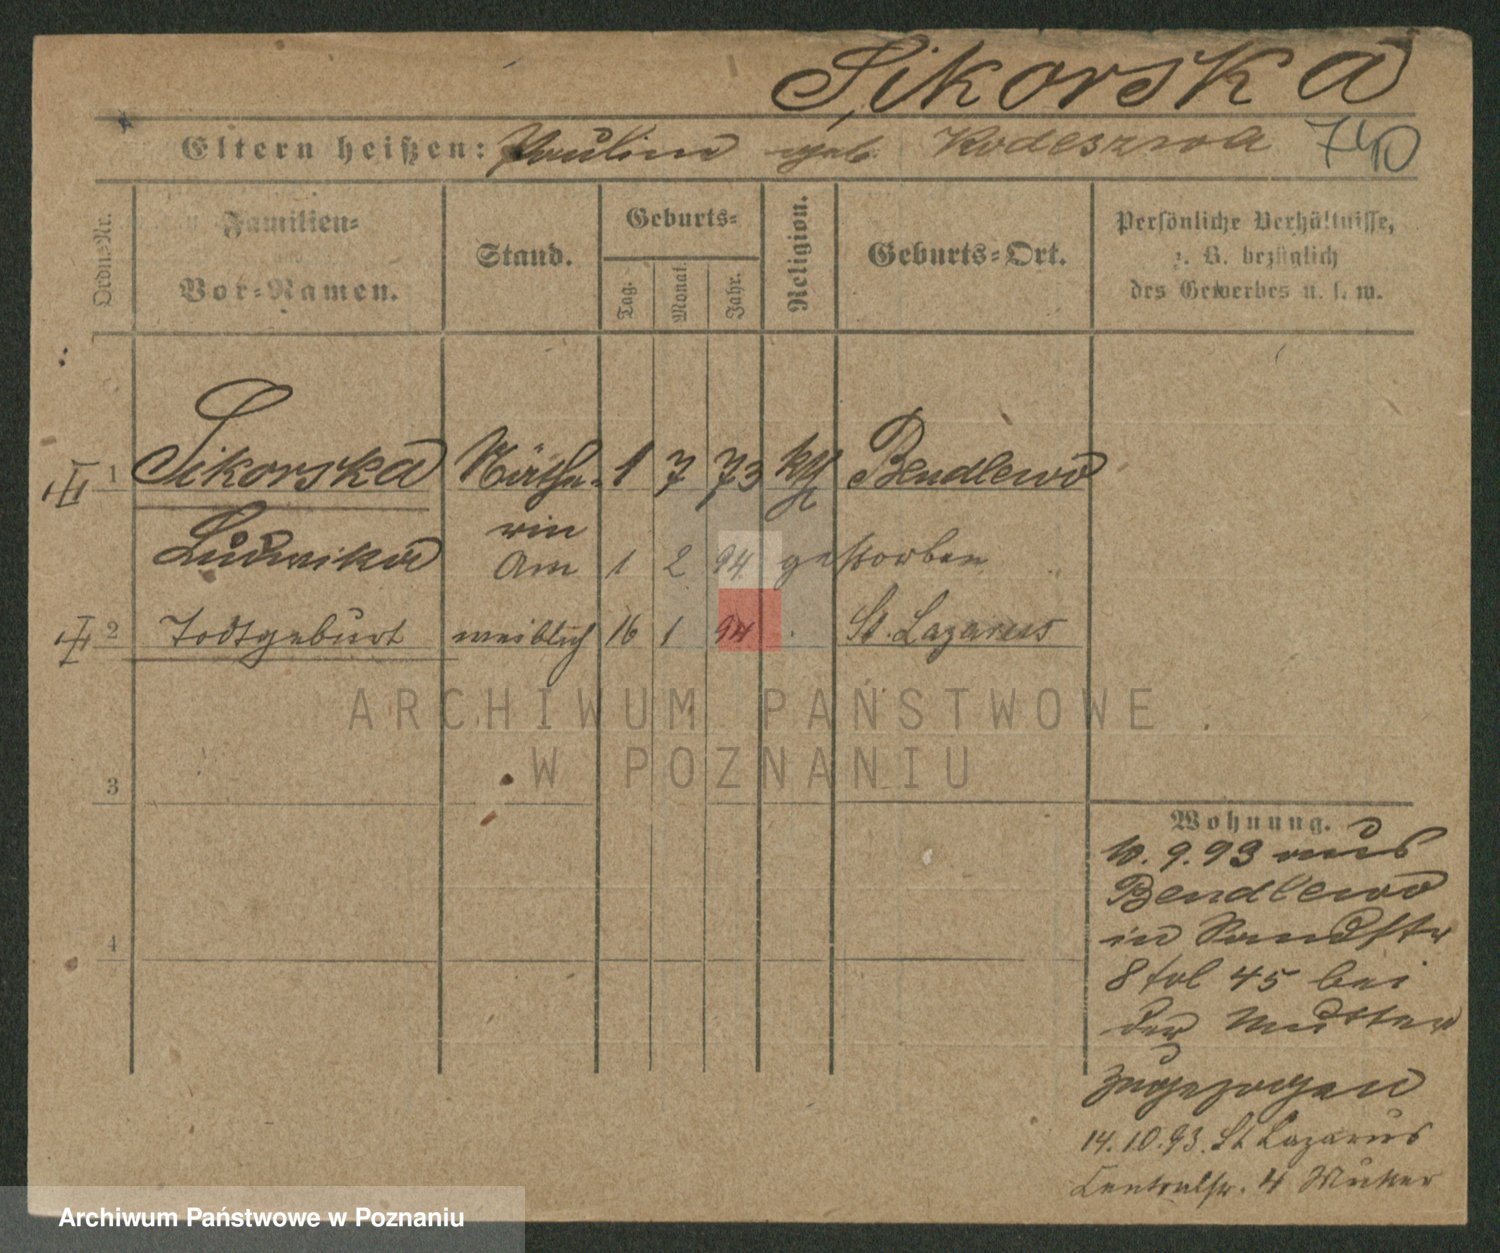 Sikorska
Eltern heißen: Pauline geb. Kodeszwa 740
Ordn.-Nr.
Familien-
und
Vor-Namen.
Stand.
Geburts-
Tag.
Monat.
Jahr.
Religion.
Geburts-Ort.
Persönliche Verhältnisse,
z. B. bezüglich
des Gewerbes u. s. w.
1 Sikorska Näthe- 1 7 73 kth Bendlewo
Ludwika rin
Am 1 2 94 gestorben
2 Todtgeburt weiblich 16 1 94 . St. Lazarus
ARCHIWUM PAŃSTWOWE
W POZNANIU
3
4
Wohnung.
10. 9. 93 aus
Bendlewo
in
8 fol 45 bei
der Mutter
zugezogen
14. 10. 93. St Lazarus
Centralstr. 4
Archiwum Państwowe w Poznaniu